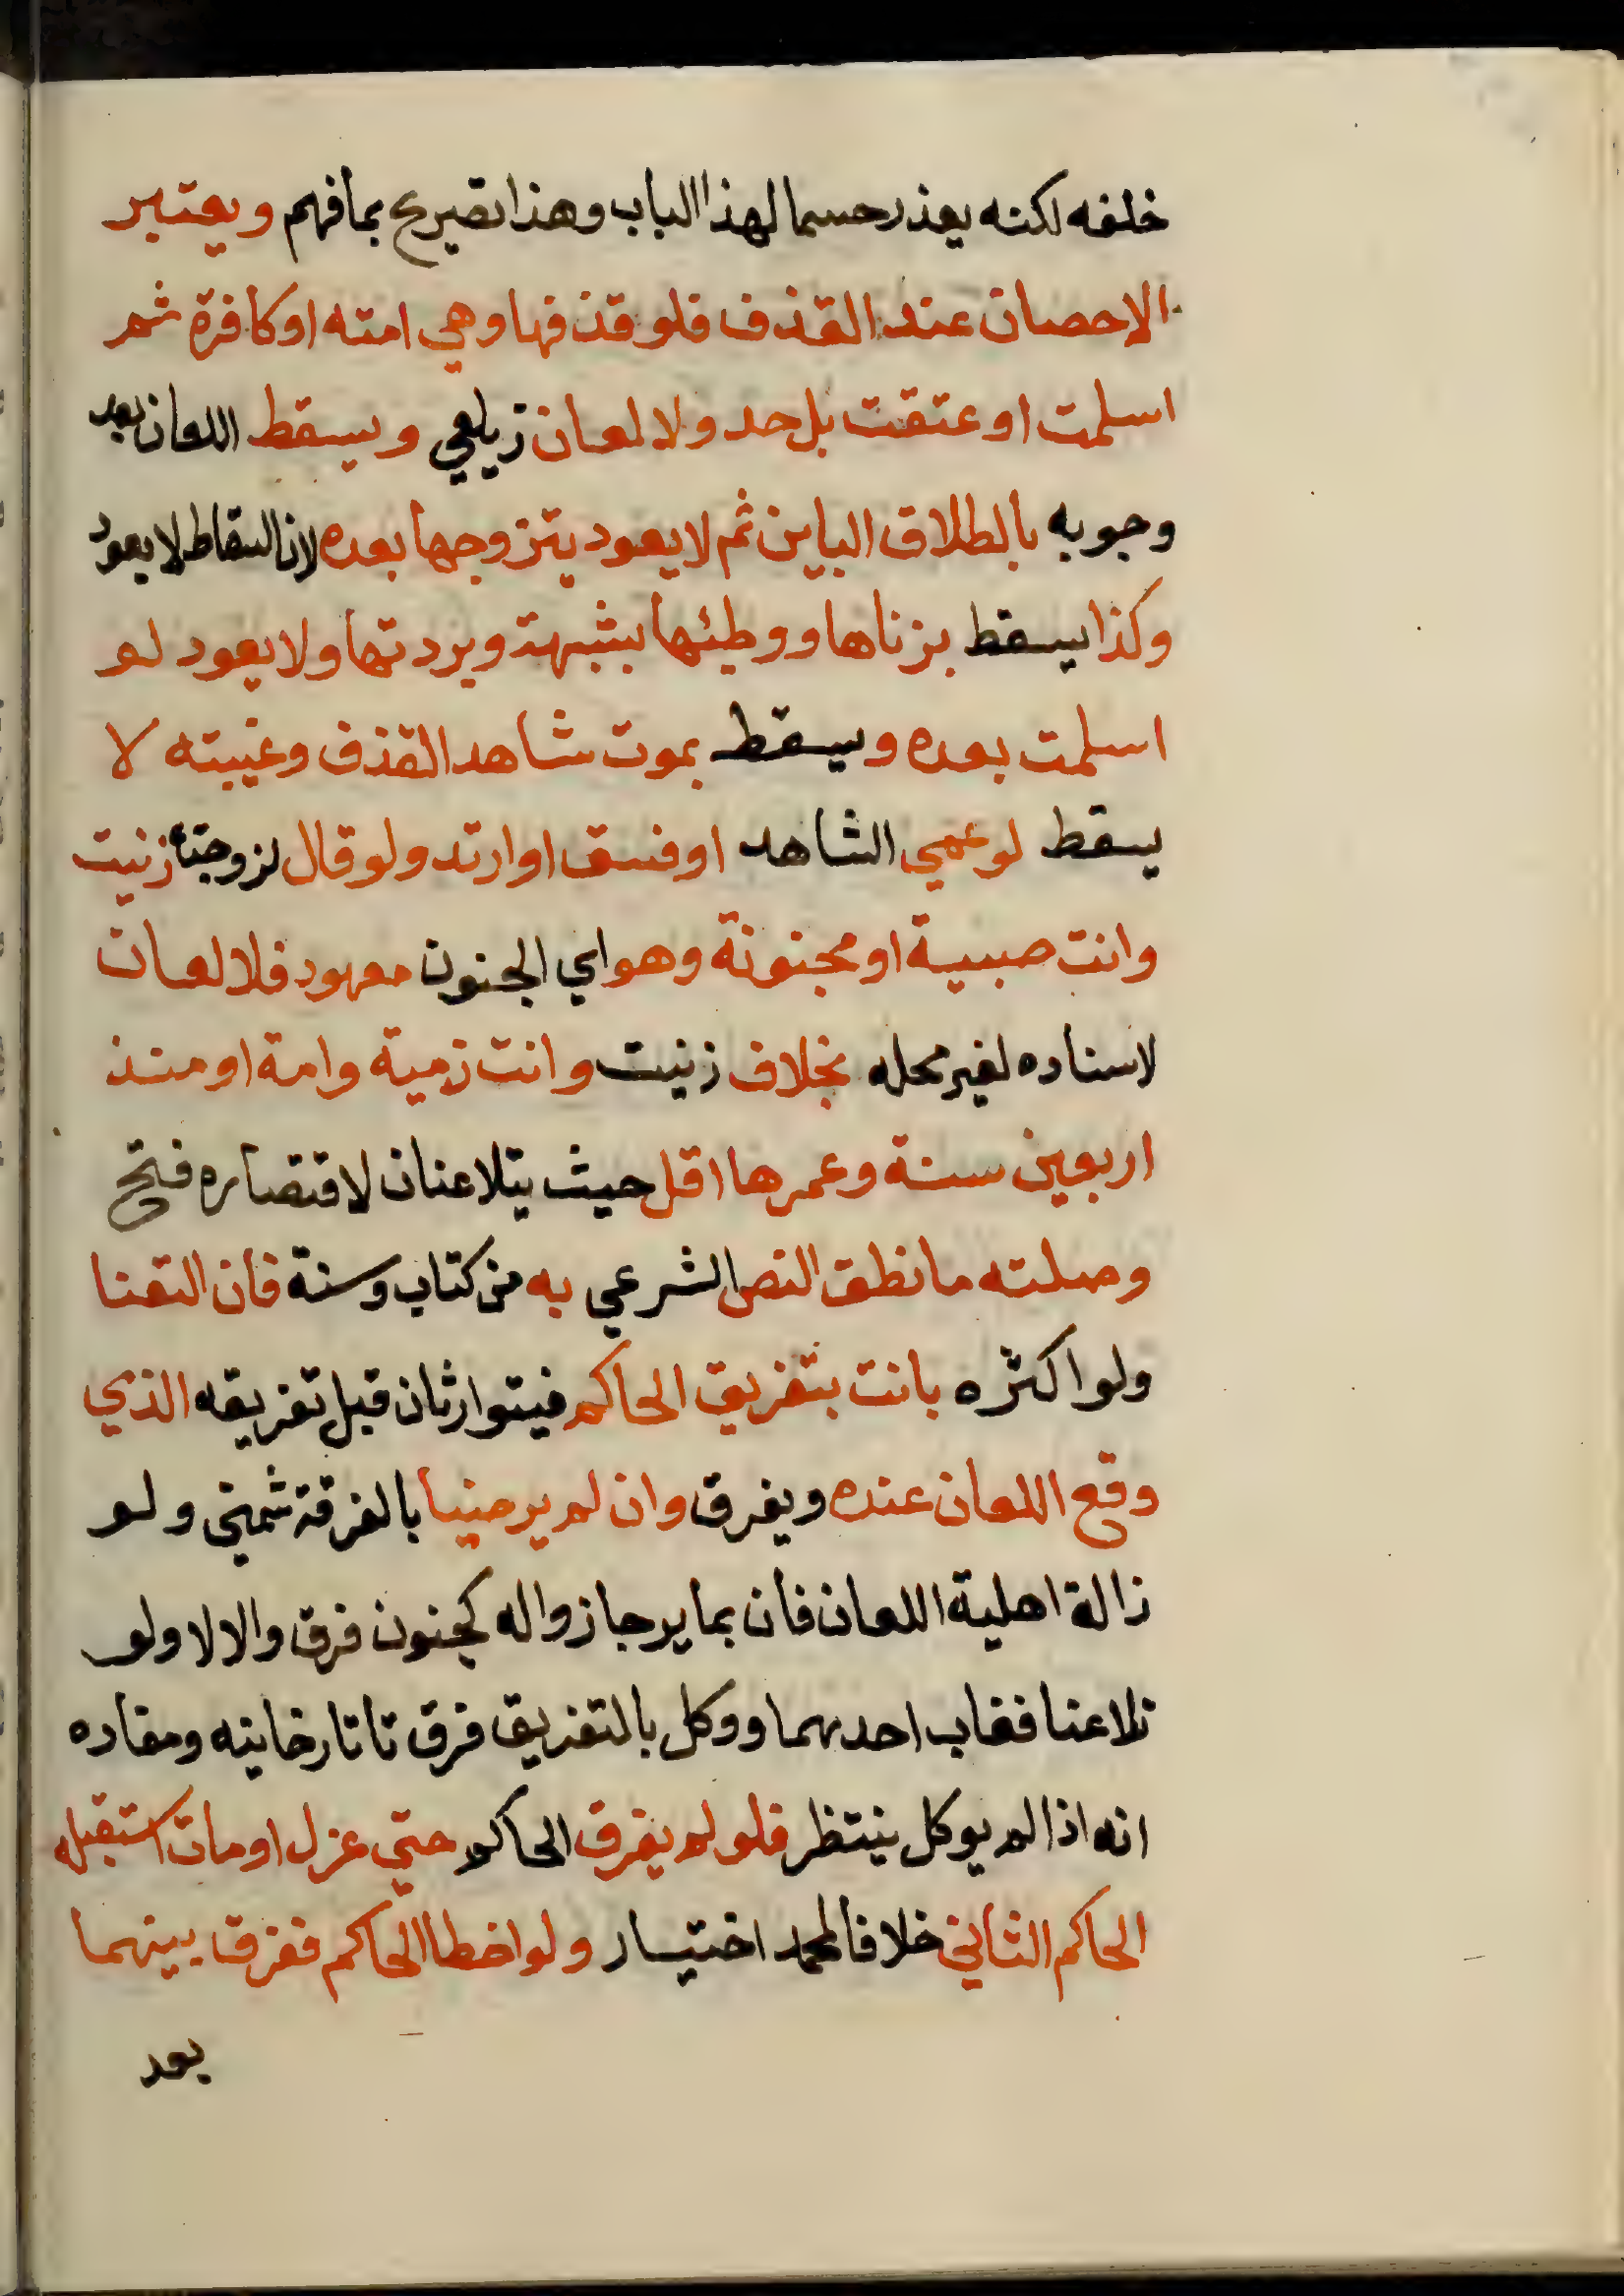 خلفه لكنه يعذر حسما لهذا الباب وهذا تصريح بما فهم ويعتبر
الاحصان عند القذف فلو قذفها وهي امته او كافرة ثم
اسلمت او عتقت بل حد ولا لعان زيلعي ويسقط اللعان بعد
وجوبه بالطلاق الباين ثم لا يعود يتزوجها بعده لان الساقط لا يعود
وكذا يسقط بزناها ووطيئها بشبهة وبردتها ولا يعود لو
اسلمت بعده ويسقط بموت شاهد القذف وغيبته لا
يسقط لو عمي الشاهد او فسق او ارتد ولو قال لزوجته زنيت
وانت صبيبة او مجنونة وهو اي الجنون معهود فلا لعان
لاسناده لغير محله بخلاف زنيت وانت زمية وامة او منذ
اربعين سنة وعمرها اقل حيث يتلاعنان لاقتصاره فتح
وصلته ما نطق النص الشرعي به من كتاب وسنة فان التعنا
ولو اكثره بانت بتفريق الحاكم فيتوارثان قبل تفريقه الذي
وقع اللعان عنده ويفرق وان لم يرضيا بالفرقة شمني ولو
زالة اهلية اللعان فان بما يرجا زواله كجنون فرق والا لا ولو
تلاعنا فغاب احدهما ووكل بالتفريق فرق تاتارخانيه ومفاده
انه اذا لم يوكل ينتظر فلو لم يفرق الحاكم حتي عزل او مات استقبله
الحاكم الثاني خلافا لمحمد اختيار ولو اخطا الحاكم ففرق بينهما
بعد